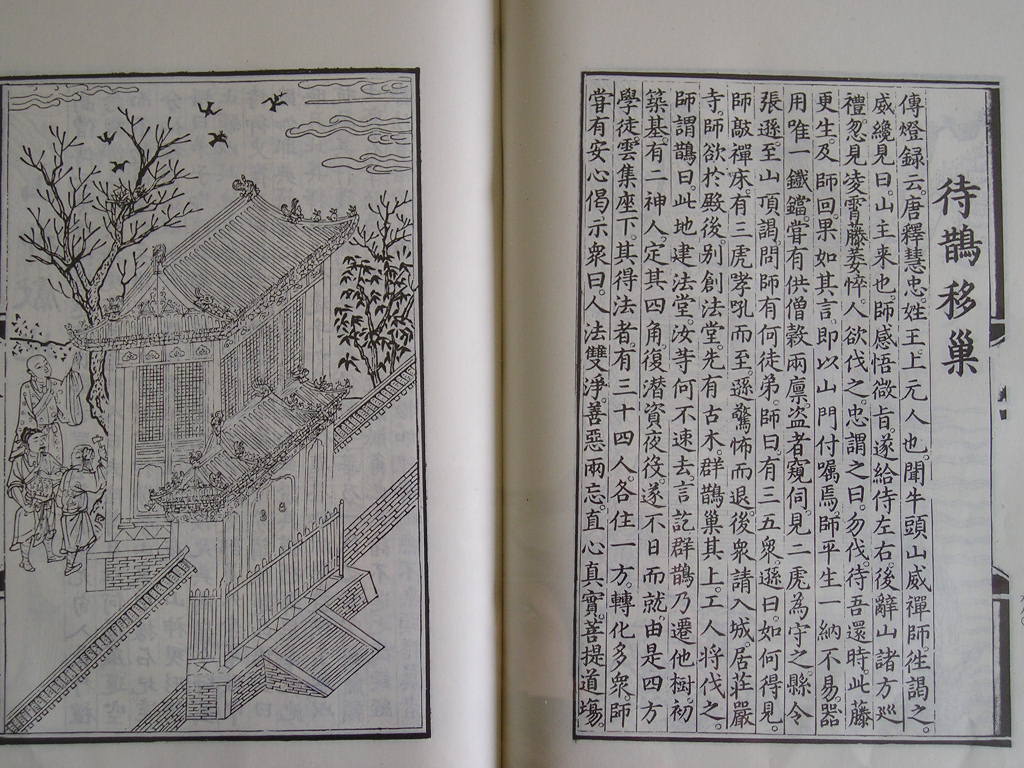 待鵲移巢
傳燈錄云。唐釋慧忠。姓王上元人也。聞牛頭山威禪師。往謁之。
威纔見曰。山主来也。師感悟微旨。遂給侍左右。後辭山諸方巡
禮。忽見凌霄藤萎悴。人欲伐之。忠謂之曰。勿伐。待吾還時。此藤
更生。及師回。果如其言。即以山門付囑焉。師平生一納不易。器
用唯一鐵鐺。甞有供僧穀兩廪。盗者窺伺。見二虎為守之。縣令
張遜。至山頂謁。問師有何徒弟。師曰。有三五衆。遜曰。如何得見。
師敲禪床。有三虎哮吼而至。遜驚怖而退。後衆請入城。居莊嚴
寺。師欲於殿後。别創法堂。先有古木。群鵲巢其上。工人將伐之。
師謂鵲曰。此地建法堂。汝等何不速去。言訖。群鵲乃遷他樹。初
築基。有二神人。定其四角。復潜資夜役。遂不日而就。由是四方
學徒。雲集座下。其得法者。有三十四人。各住一方。轉化多衆。師
甞有安心偈示衆曰。人法雙淨。善惡兩忘。直心真實。菩提道塲